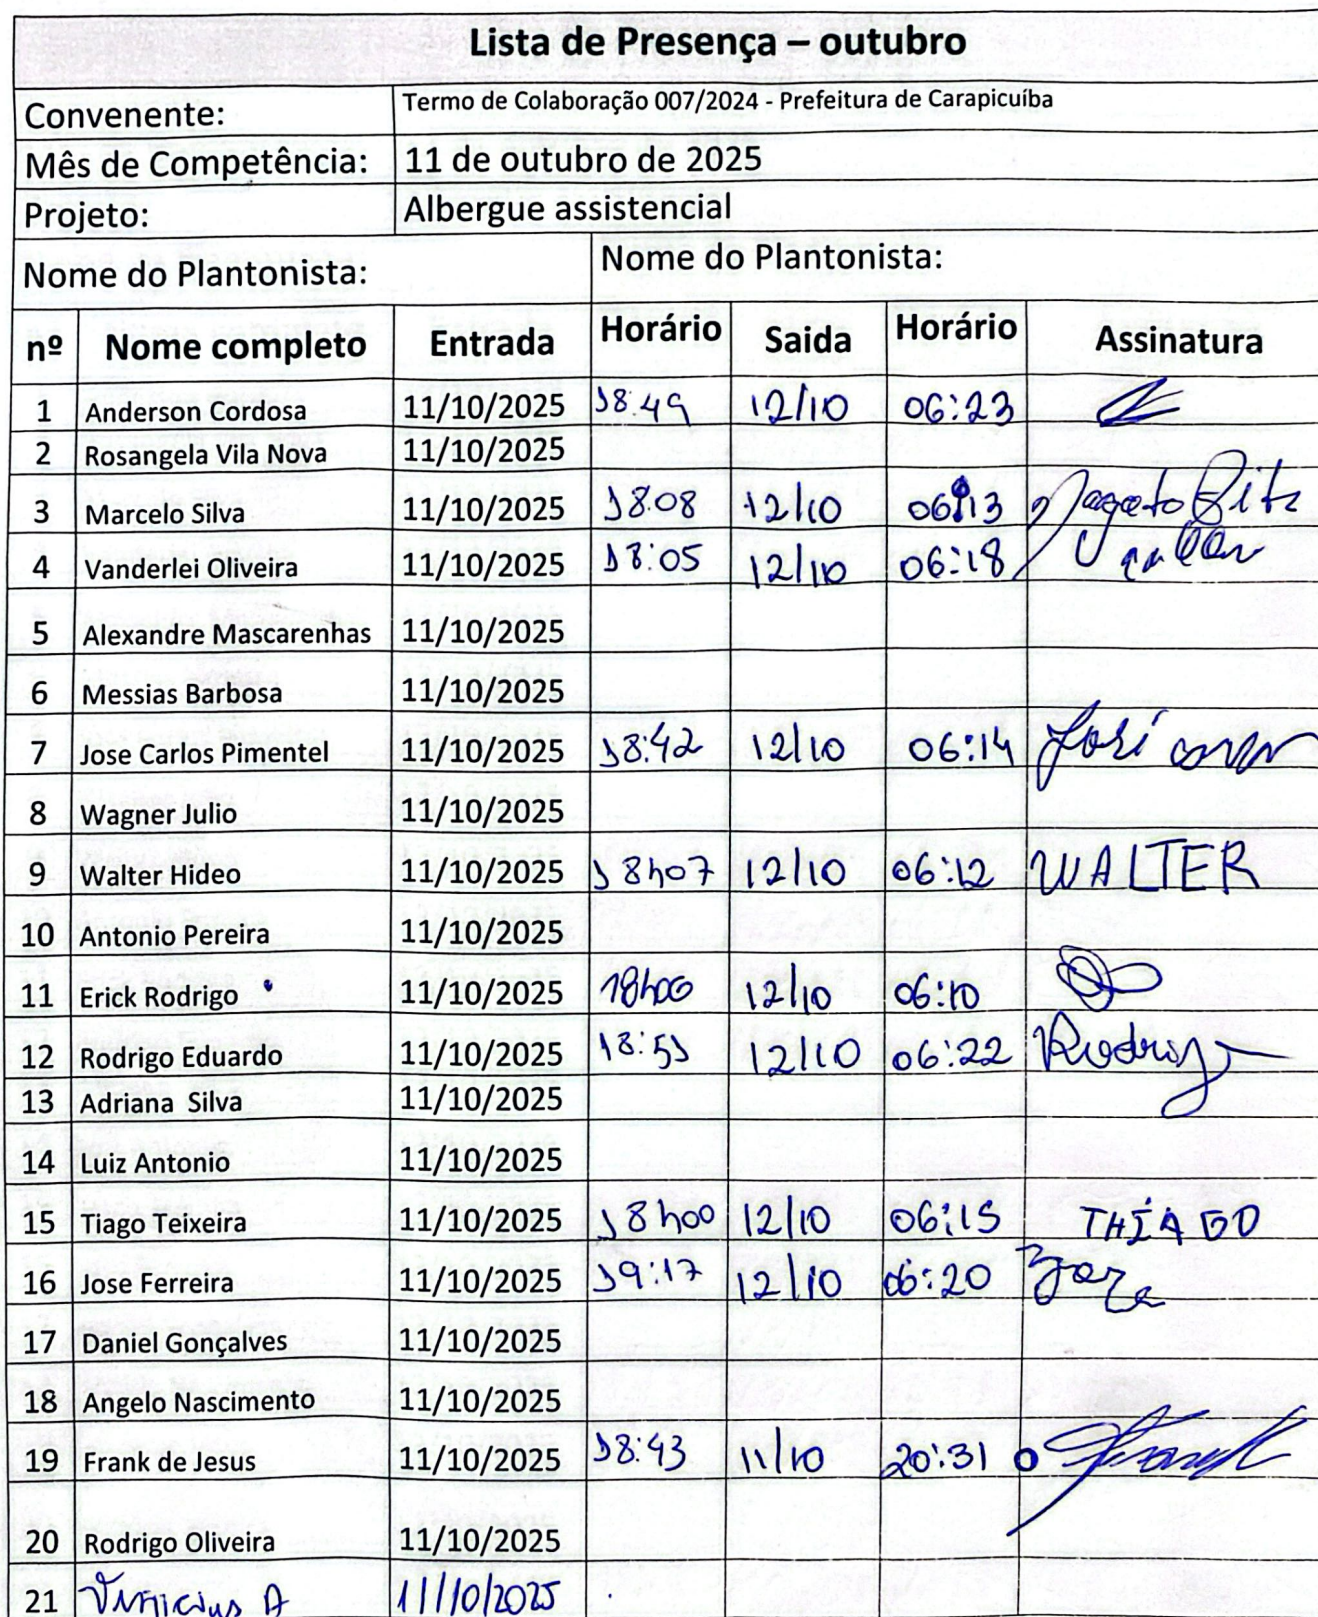 Lista de Presença – outubro
Convenente: Termo de Colaboração 007/2024 - Prefeitura de Carapicuíba
Mês de Competência: 11 de outubro de 2025
Projeto: Albergue assistencial
Nome do Plantonista: Nome do Plantonista:
nº Nome completo Entrada Horário Saida Horário Assinatura
1 Anderson Cordosa 11/10/2025 18:49 12/10 06:23
2 Rosangela Vila Nova 11/10/2025
3 Marcelo Silva 11/10/2025 18:08 12/10 06:13
4 Vanderlei Oliveira 11/10/2025 18:05 12/10 06:18
5 Alexandre Mascarenhas 11/10/2025
6 Messias Barbosa 11/10/2025
7 Jose Carlos Pimentel 11/10/2025 18:42 12/10 06:14 José
8 Wagner Julio 11/10/2025
9 Walter Hideo 11/10/2025 18h07 12/10 06:12 WALTER
10 Antonio Pereira 11/10/2025
11 Erick Rodrigo 11/10/2025 18h00 12/10 06:10
12 Rodrigo Eduardo 11/10/2025 18:51 12/10 06:22 Rodrigo
13 Adriana Silva 11/10/2025
14 Luiz Antonio 11/10/2025
15 Tiago Teixeira 11/10/2025 18h00 12/10 06:15 THIAGO
16 Jose Ferreira 11/10/2025 19:17 12/10 06:20 Joze
17 Daniel Gonçalves 11/10/2025
18 Angelo Nascimento 11/10/2025
19 Frank de Jesus 11/10/2025 18:43 11/10 20:31 Frank
20 Rodrigo Oliveira 11/10/2025
21 Vinicius A 11/10/2025